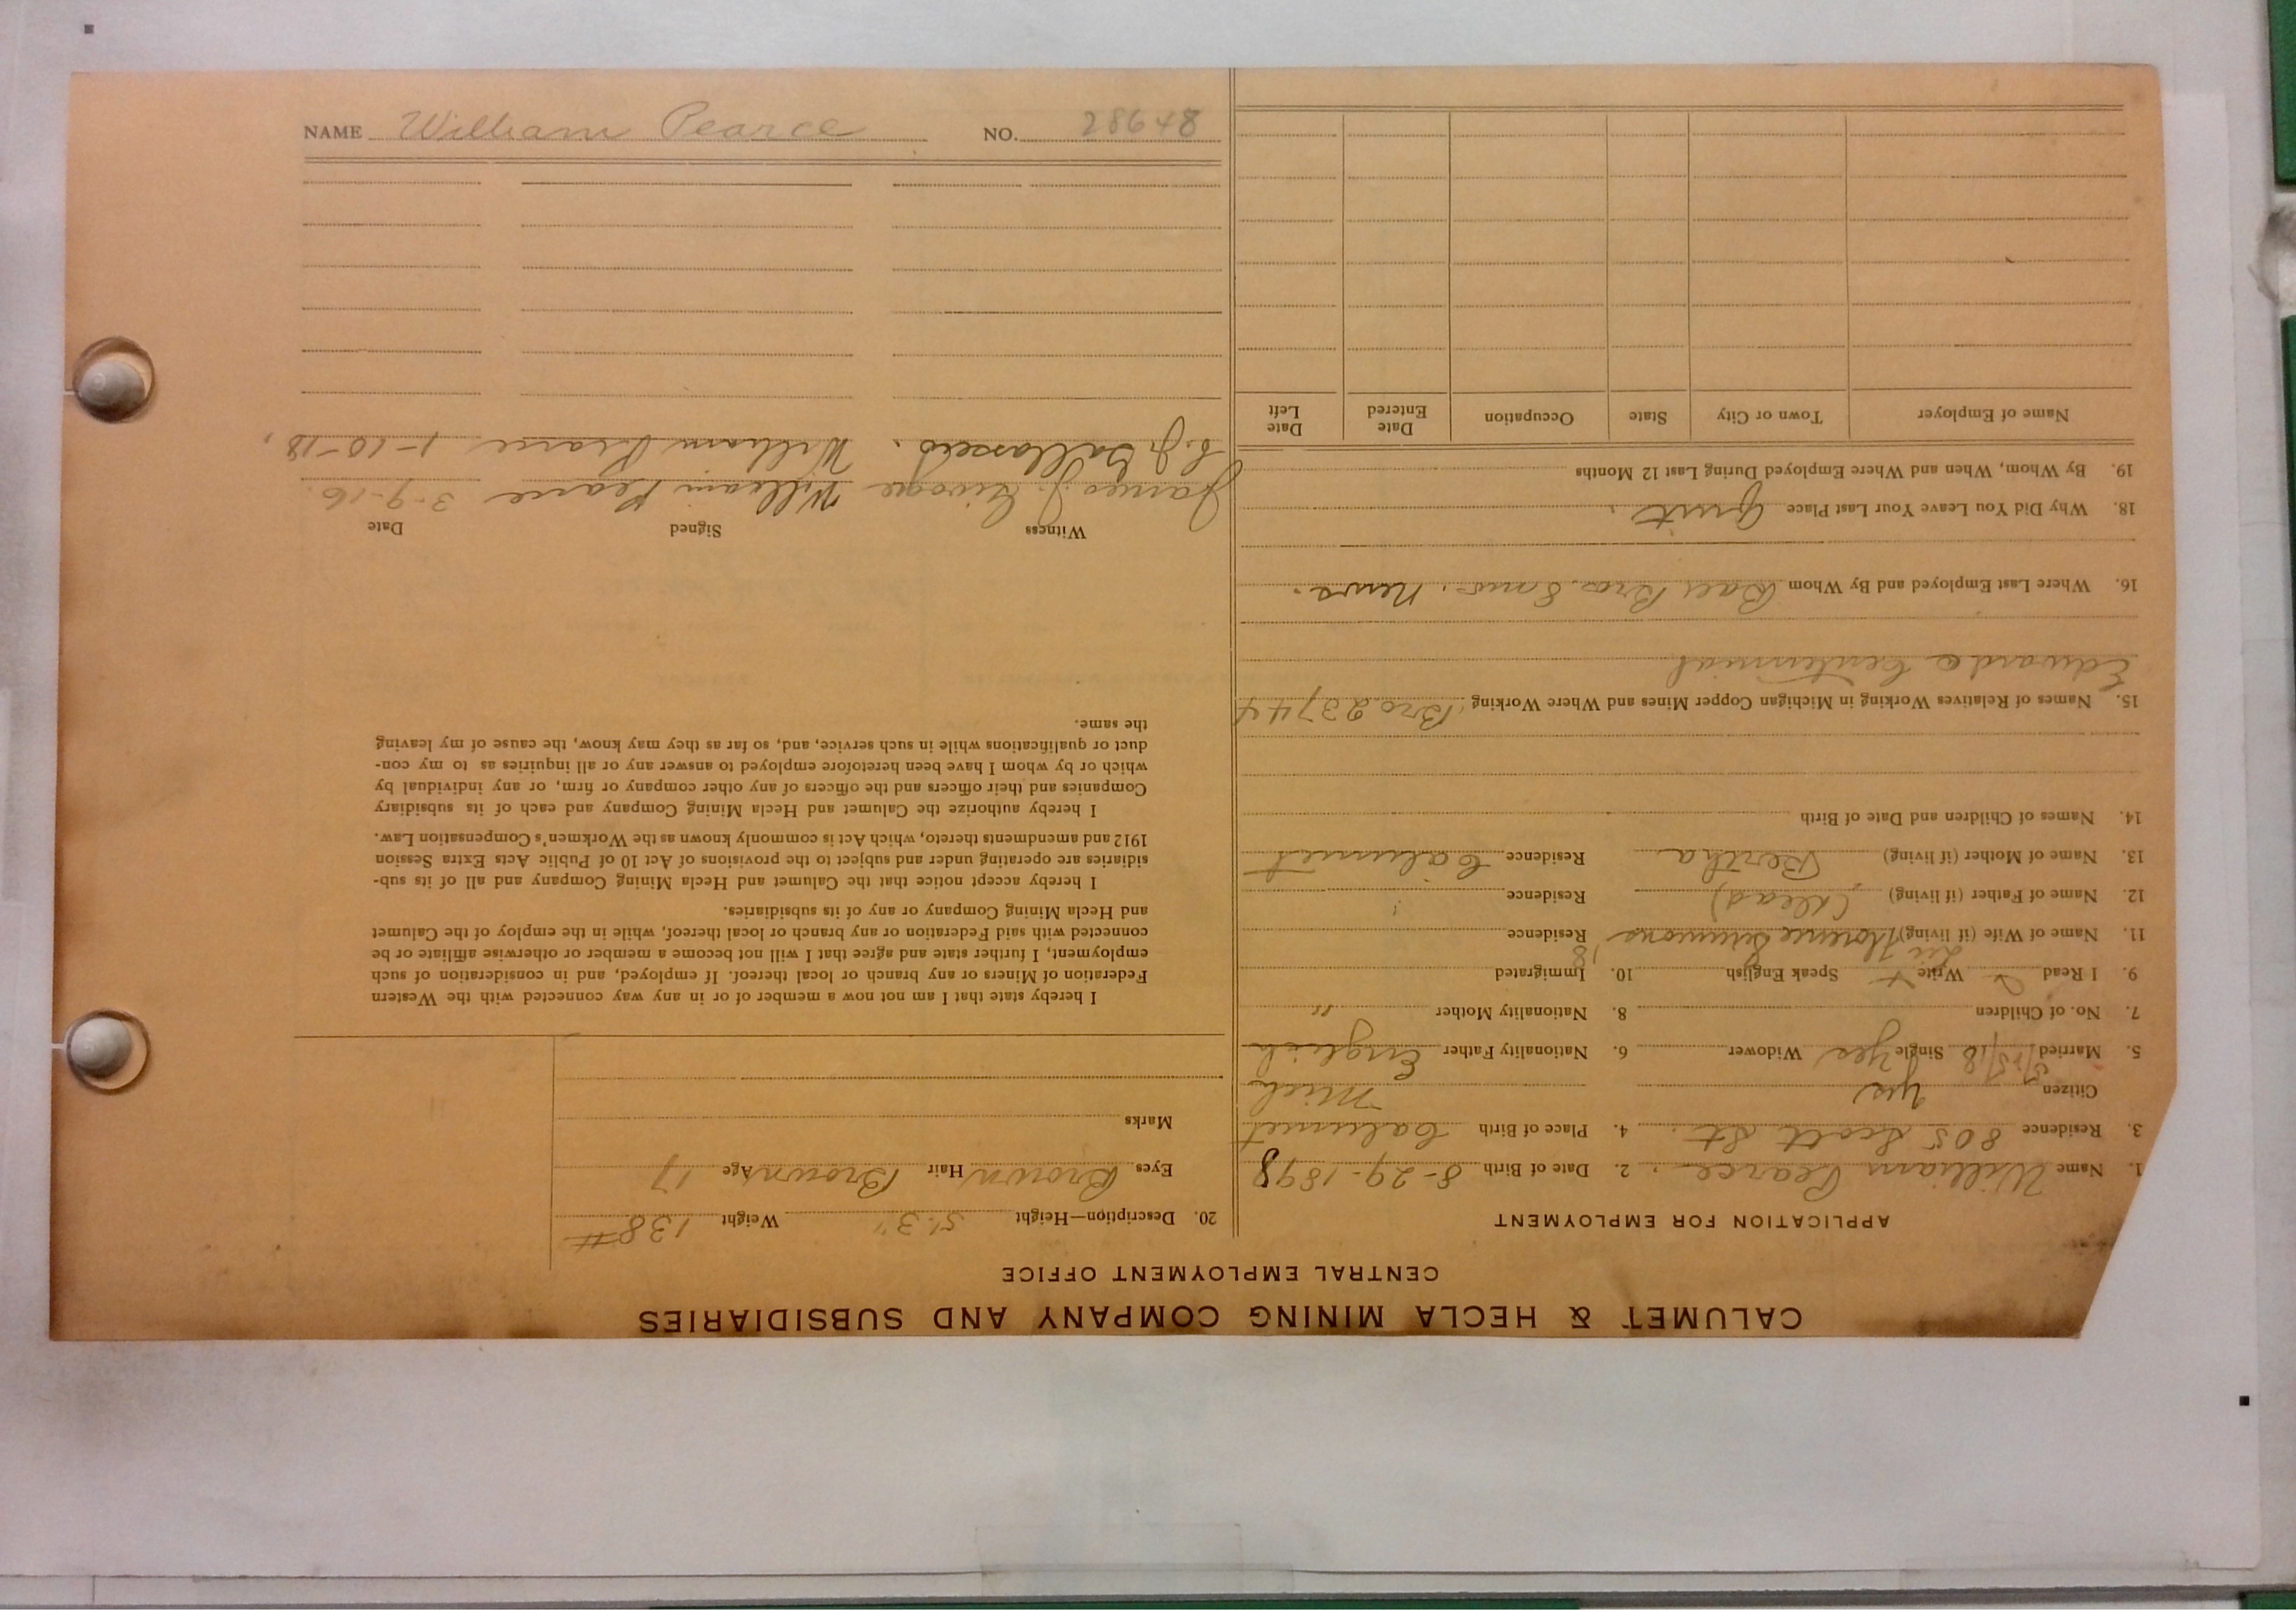 CALUMET & HECLA MINING COMPANY AND SUBSIDIARIES
CENTRAL EMPLOYMENT OFFICE
APPLICATION FOR EMPLOYMENT
1. Name William Pearce 2. Date of Birth 8-29-1898
3. Residence 805 Scott St. 4. Place of Birth Calumet
Citizen Yes Mich
5. Married Single Yes Widower 6. Nationality Father English
7. No. of Children 8. Nationality Mother "
9. I Read Write Speak English 10. Immigrated
11. Name of Wife (if living) Florence Residence
12. Name of Father (if living) (dead) Residence
13. Name of Mother (if living) Bertha Residence Calumet
14. Names of Children and Date of Birth
15. Names of Relatives Working in Michigan Copper Mines and Where Working Bro 23744
Edward @ Centennial
16. Where Last Employed and By Whom Bros.
18. Why Did You Leave Your Last Place Quit.
19. By Whom, When and Where Employed During Last 12 Months
Name of Employer Town or City State Occupation Date Entered Date Left
20. Description—Height 5'.3" Weight 138#
Eyes Brown Hair Brown Age 17
Marks
I hereby state that I am not now a member of or in any way connected with the Western
Federation of Miners or any branch or local thereof. If employed, and in consideration of such
employment, I further state and agree that I will not become a member or otherwise affiliate or be
connected with said Federation or any branch or local thereof, while in the employ of the Calumet
and Hecla Mining Company or any of its subsidiaries.
I hereby accept notice that the Calumet and Hecla Mining Company and all of its sub-
sidiaries are operating under and subject to the provisions of Act 10 of Public Acts Extra Session
1912 and amendments thereto, which Act is commonly known as the Workmen's Compensation Law.
I hereby authorize the Calumet and Hecla Mining Company and each of its subsidiary
Companies and their officers and the officers of any other company or firm, or any individual by
which or by whom I have been heretofore employed to answer any or all inquiries as to my con-
duct or qualifications while in such service, and, so far as they may know, the cause of my leaving
the same.
Witness Signed Date
James J. William Pearce 3-9-16.
William Pearce 1-10-18
NAME William Pearce NO. 28648